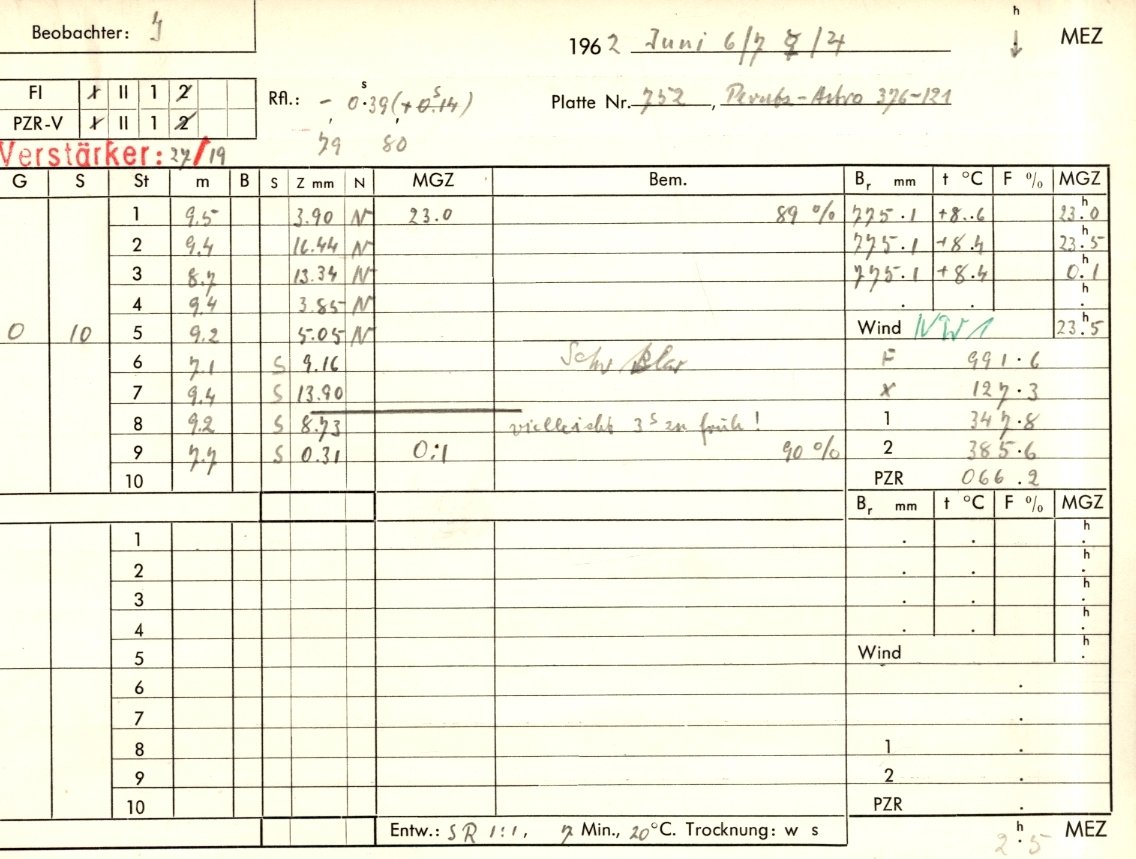 h
Beobachter: J
1962 Juni 6/7 /4 MEZ
FI I II 1 2
Rfl.: - 0.39 (+0.14)
s s
Platte Nr. 752, Perutz-Astro 376-121
PZR-V I II 1 2
79 80
Verstärker: 27/19
G S St m B S Z mm N MGZ Bem. Br mm t °C F % MGZ
1 9.5 3.90 N 23.0 89 % 775.1 +8.6 23.0 h
2 9.4 16.44 N 775.1 +8.4 23.5 h
3 8.7 13.34 N 775.1 +8.4 0.1 h
4 9.4 3.85 N . . . h
0 10 5 9.2 5.05 N Wind NW 1 23.5 h
6 7.1 S 9.16 Sehr klar F 991.6
7 9.4 S 13.90 X 127.3
8 9.2 S 8.73 vielleicht 3s zu früh! 1 347.8
9 7.7 S 0.31 0.1 90 % 2 385.6
10 PZR 066.2
Br mm t °C F % MGZ
1 . . . h
2 . . . h
3 . . . h
4 . . . h
5 Wind . h
6 .
7 .
8 1 .
9 2 .
10 PZR .
Entw.: SR 1:1, 7 Min., 20°C. Trocknung: w s
2.5 h MEZ